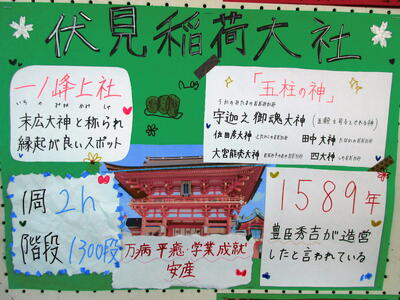 伏見稲荷大社
一ノ峰上社
いちノみねかみしゃ
末広大神と称られ
縁起が良いスポット
「五柱の神」
宇迦之御魂大神
佐田彦大神
田中大神
大宮能売大神
四大神
1周2h
階段1300段
万病平癒・学業成就
安産
1589年
豊臣秀吉が造営
したと言われている